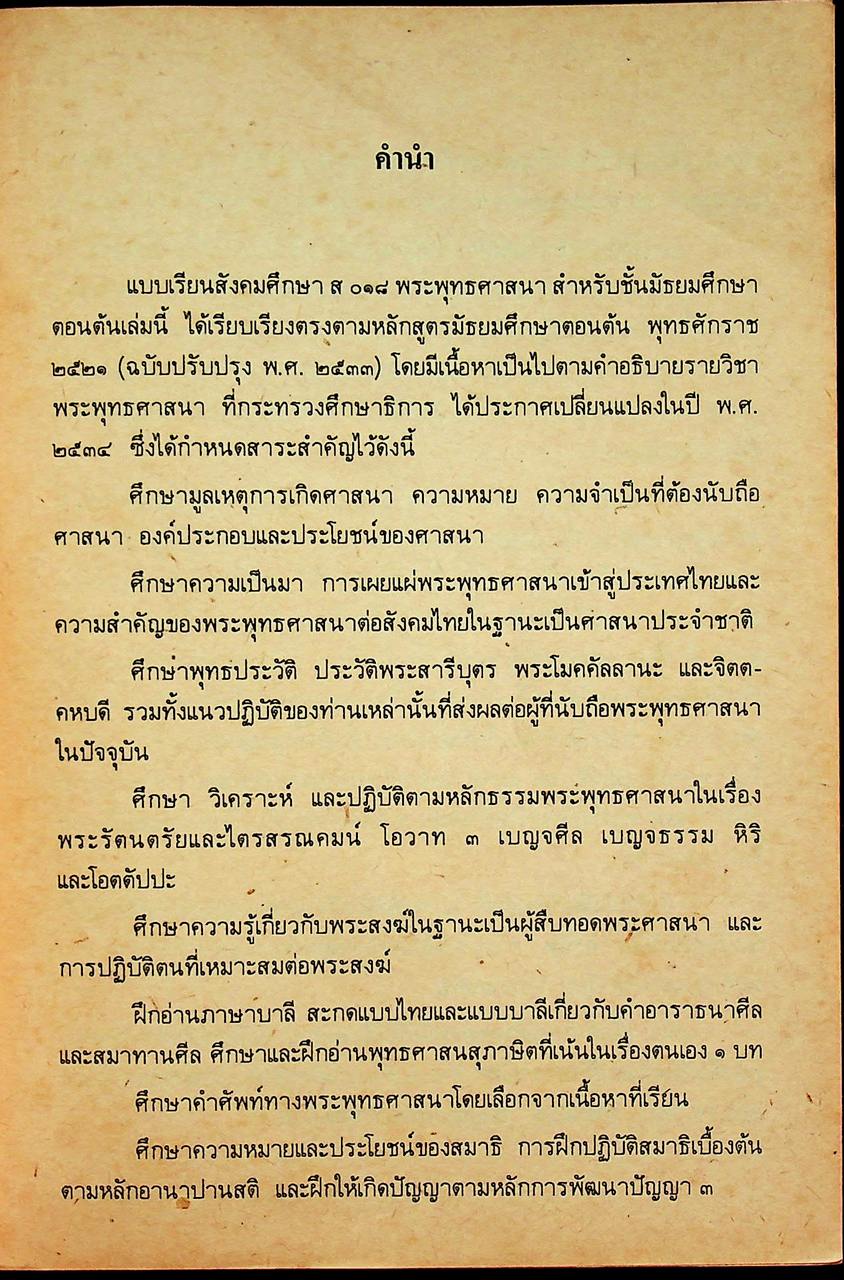 คำนำ
แบบเรียนสังคมศึกษา ส ๐๑๘ พระพุทธศาสนา สำหรับชั้นมัธยมศึกษา
ตอนต้นเล่มนี้ ได้เรียบเรียงตรงตามหลักสูตรมัธยมศึกษาตอนต้น พุทธศักราช
๒๕๒๑ (ฉบับปรับปรุง พ.ศ. ๒๕๓๓) โดยมีเนื้อหาเป็นไปตามคำอธิบายรายวิชา
พระพุทธศาสนา ที่กระทรวงศึกษาธิการ ได้ประกาศเปลี่ยนแปลงในปี พ.ศ.
๒๕๓๔ ซึ่งได้กำหนดสาระสำคัญไว้ดังนี้
ศึกษามูลเหตุการเกิดศาสนา ความหมาย ความจำเป็นที่ต้องนับถือ
ศาสนา องค์ประกอบและประโยชน์ของศาสนา
ศึกษาความเป็นมา การเผยแผ่พระพุทธศาสนาเข้าสู่ประเทศไทยและ
ความสำคัญของพระพุทธศาสนาต่อสังคมไทยในฐานะเป็นศาสนาประจำชาติ
ศึกษาพุทธประวัติ ประวัติพระสารีบุตร พระโมคคัลลานะ และจิตต-
คหบดี รวมทั้งแนวปฏิบัติของท่านเหล่านั้นที่ส่งผลต่อผู้ที่นับถือพระพุทธศาสนา
ในปัจจุบัน
ศึกษา วิเคราะห์ และปฏิบัติตามหลักธรรมพระพุทธศาสนาในเรื่อง
พระรัตนตรัยและไตรสรณคมน์ โอวาท ๓ เบญจศีล เบญจธรรม หิริ
และโอตตัปปะ
ศึกษาความรู้เกี่ยวกับพระสงฆ์ในฐานะเป็นผู้สืบทอดพระศาสนา และ
การปฏิบัติตนที่เหมาะสมต่อพระสงฆ์
ฝึกอ่านภาษาบาลี สะกดแบบไทยและแบบบาลีเกี่ยวกับคำอาราธนาศีล
และสมาทานศีล ศึกษาและฝึกอ่านพุทธศาสนสุภาษิตที่เน้นในเรื่องตนเอง ๑ บท
ศึกษาคำศัพท์ทางพระพุทธศาสนาโดยเลือกจากเนื้อหาที่เรียน
ศึกษาความหมายและประโยชน์ของสมาธิ การฝึกปฏิบัติสมาธิเบื้องต้น
ตามหลักอานาปานสติ และฝึกให้เกิดปัญญาตามหลักการพัฒนาปัญญา ๓